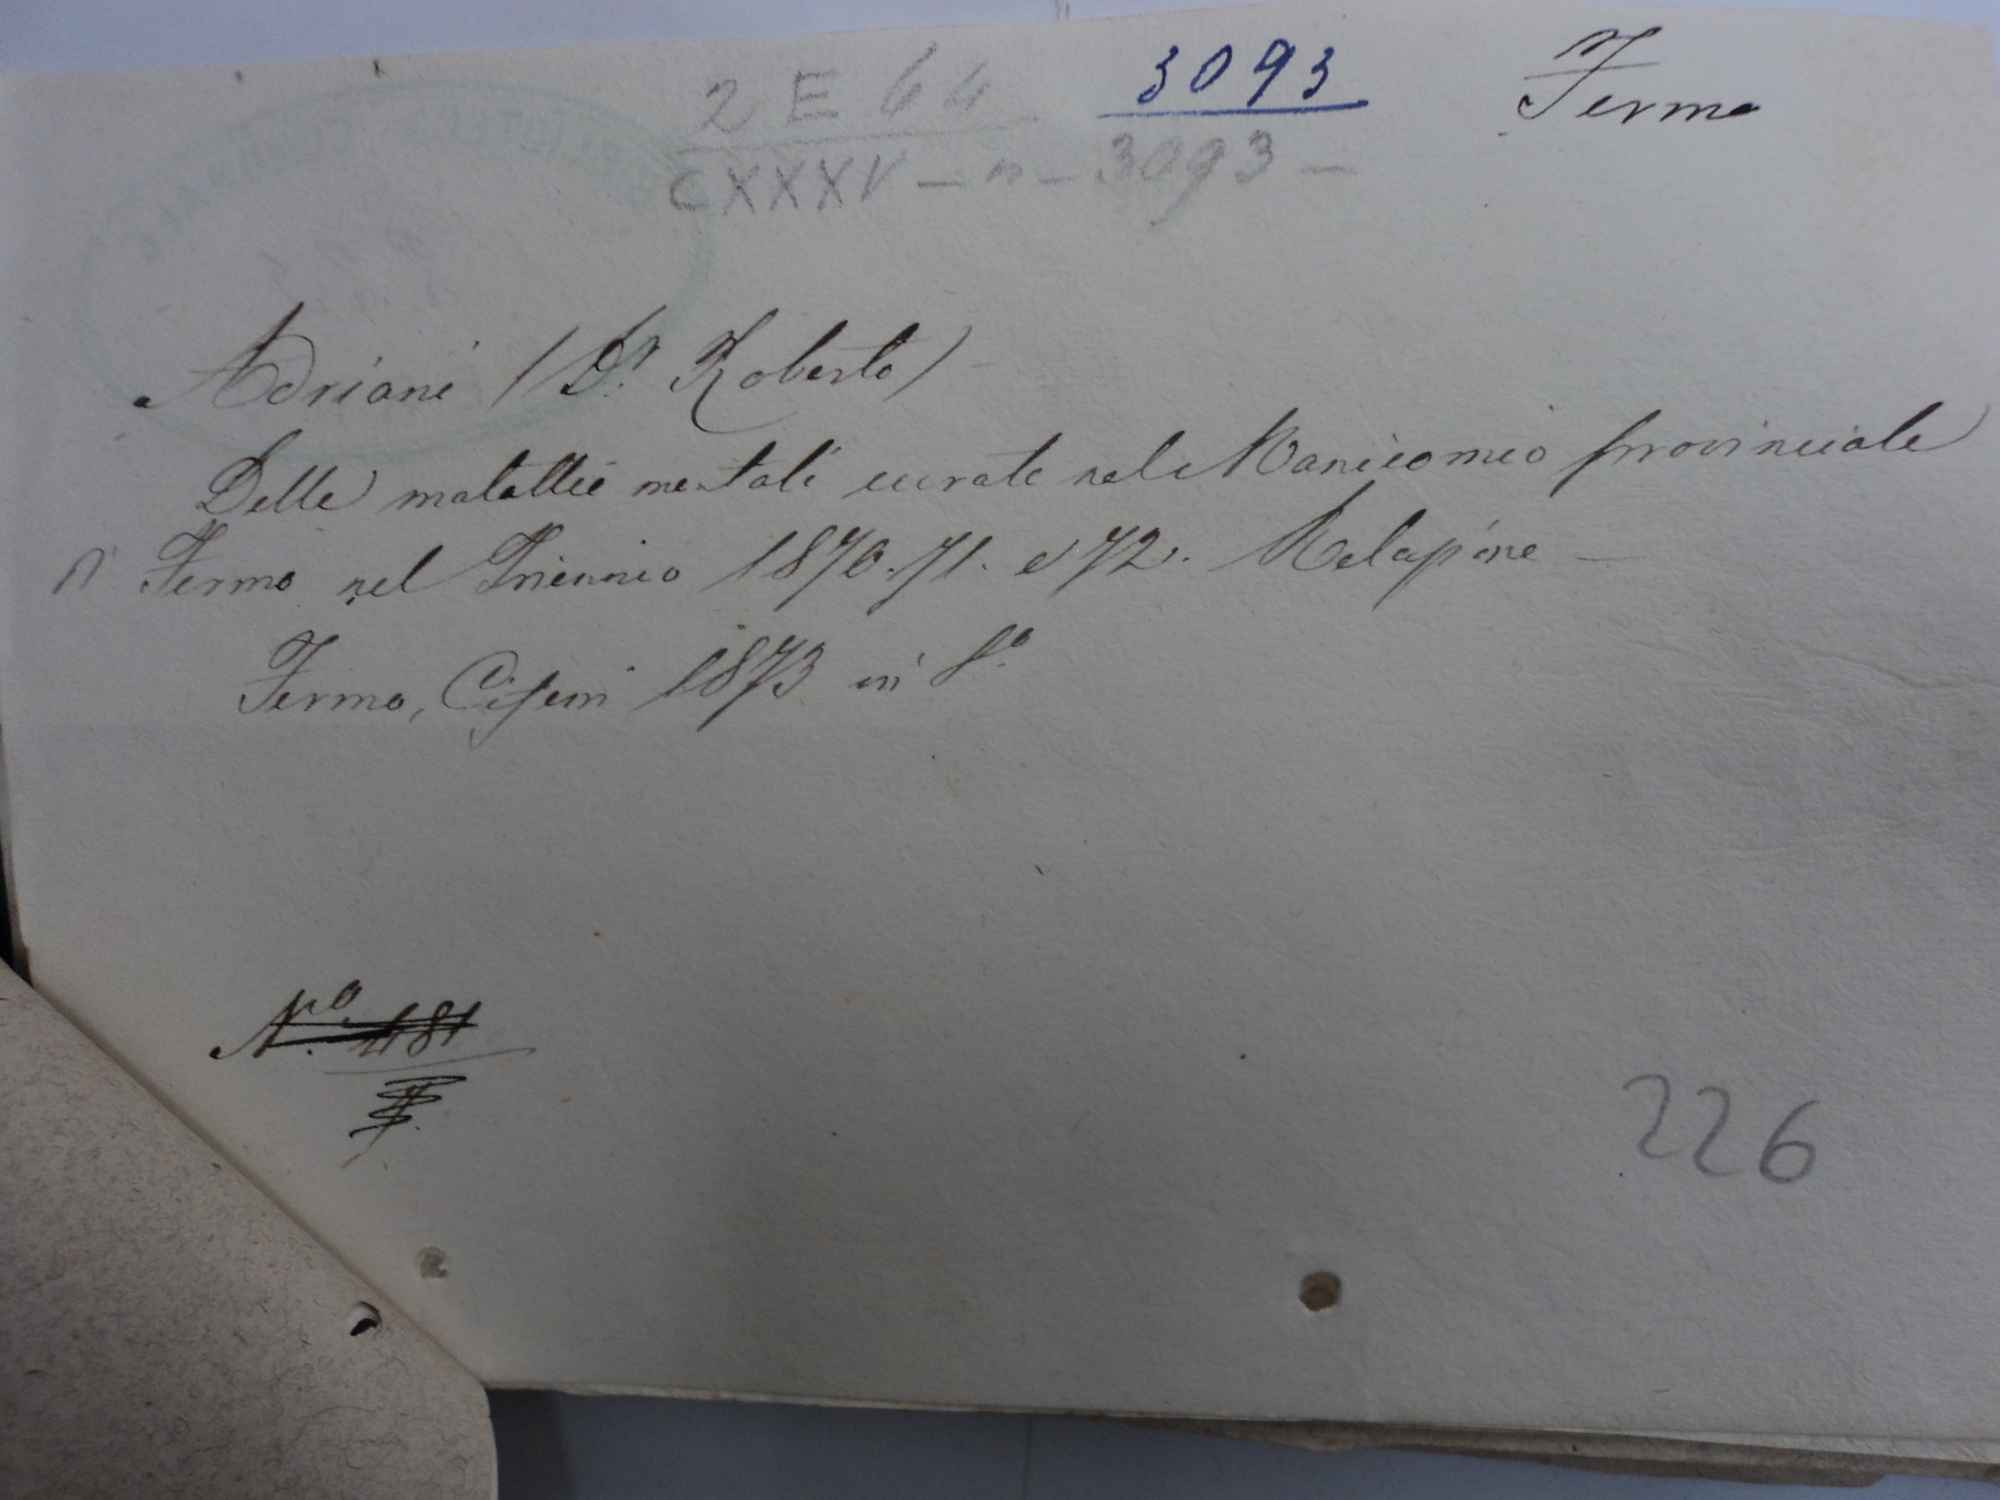 2 E 64 3093 Fermo
CXXXV - n - 3093 -
Adriani (D.r Roberto)
Delle malattie mentali curate nel Manicomio provinciale
di Fermo nel Triennio 1870. 71. e 72. Relazione -
Fermo, Ciferri 1873 in 8.o
N.o 481
226